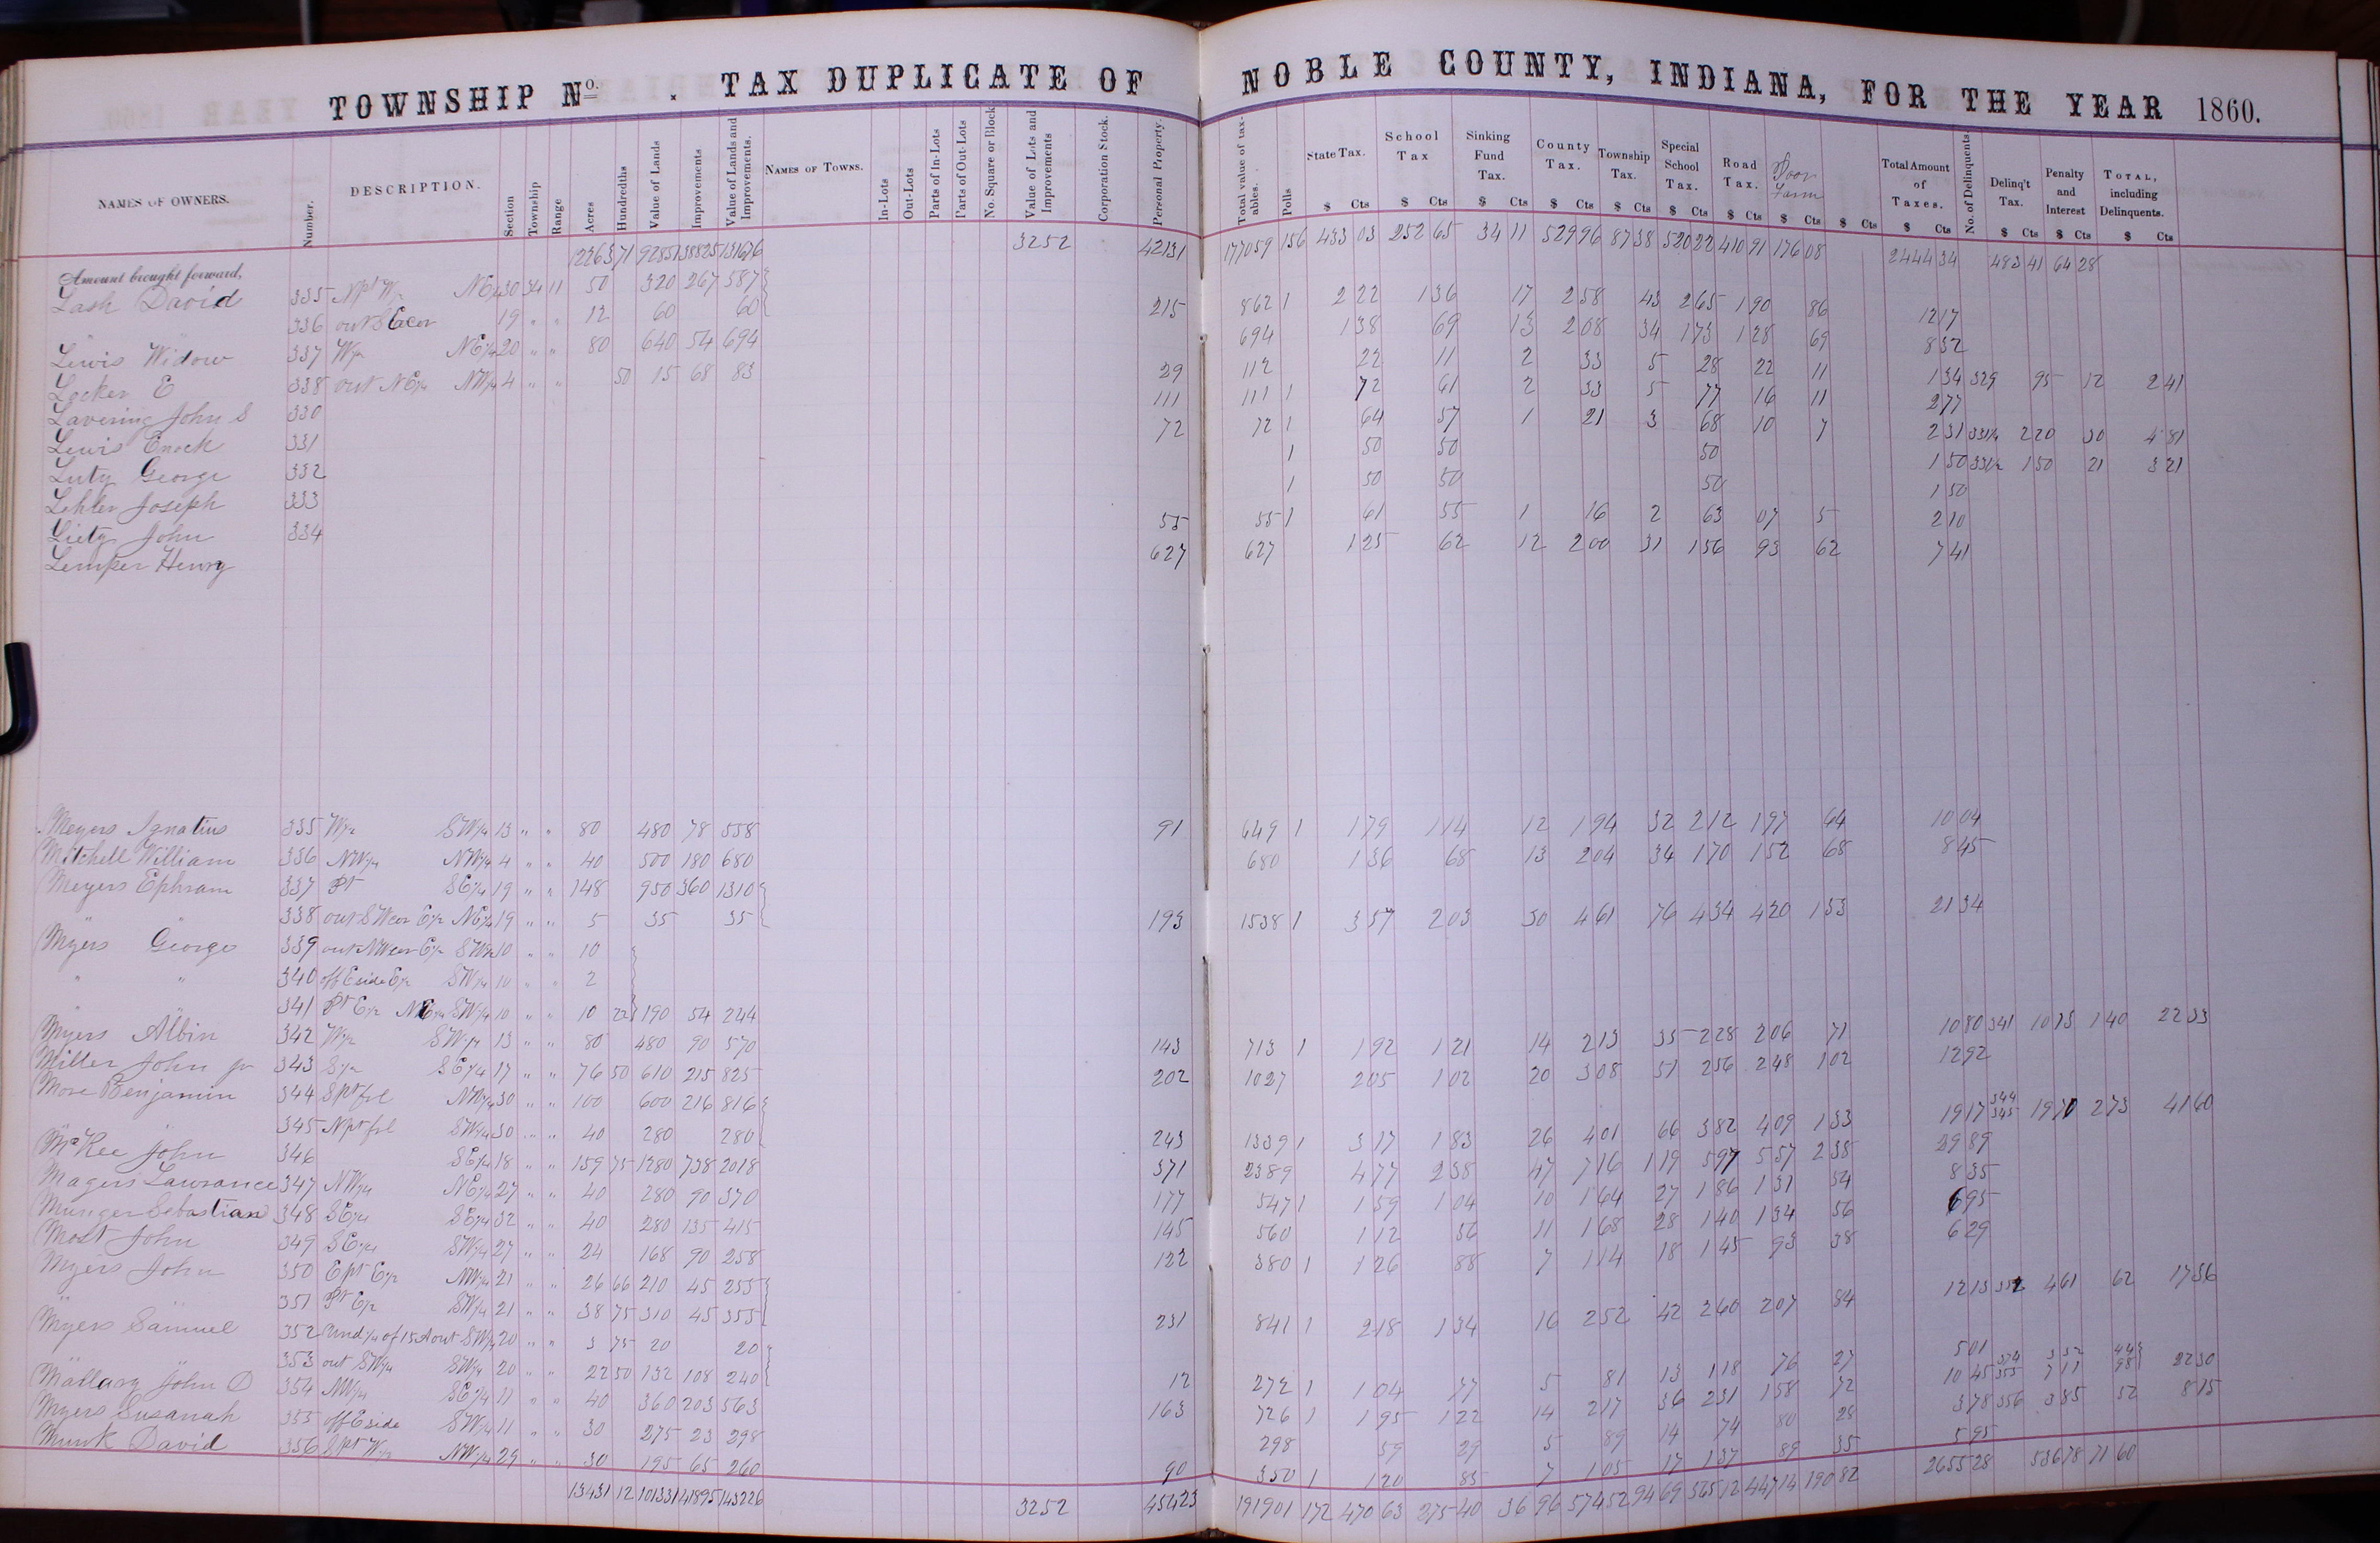 TOWNSHIP No. . TAX DUPLICATE OF NOBLE COUNTY, INDIANA, FOR THE YEAR 1860.
NAMES OF OWNERS. Number. DESCRIPTION. Section Township Range Acres Hundredths Value of Lands Improvements Value of Lands and Improvements. NAMES OF TOWNS. In-Lots Out-Lots Parts of In-Lots Parts of Out-Lots No. Square or Block Value of Lots and Improvements Corporation Stock. Personal Property. Total value of taxables. Polls State Tax. School Tax Sinking Fund Tax. County Tax. Township Tax. Special School Tax. Road Tax. Poor Farm Total Amount of Taxes. No. of Delinquents Delinq't Tax. Penalty and Interest TOTAL, including Delinquents.
$ Cts $ Cts $ Cts $ Cts $ Cts $ Cts $ Cts $ Cts $ Cts $ Cts $ Cts $ Cts $ Cts
Amount brought forward, 12263 71 92851 38825 131676 3252 42131 177059 156 433 03 252 65 34 11 529 96 87 38 520 22 410 91 176 08 2444 34 483 41 64 28
Lash David 335 N pt W1/2 NE1/4 30 34 11 50 320 267 587
336 out SE cor 19 " " 12 60 60 215 862 1 2 22 1 36 17 2 58 43 2 65 1 90 86 12 17
Lewis Widow 337 W1/2 NE1/4 20 " " 80 640 54 694 694 1 38 69 13 2 08 34 1 73 1 28 69 8 32
Locker E 338 out NE1/4 NW1/4 4 " " 50 15 68 83 29 112 22 11 2 33 5 28 22 11 1 34 329 95 12 2 41
Lavering John S 330 111 111 1 72 61 2 33 5 77 16 11 2 77
Lewis Enoch 331 72 72 1 64 57 1 21 3 68 10 7 2 31 331/4 2 20 30 4 81
Luty George 332 1 50 50 50 1 50 331/2 1 50 21 3 21
Lehler Joseph 333 1 50 50 50 1 50
Lietz John 334 55 55 1 61 55 1 16 2 63 07 5 2 10
Lemper Henry 627 627 1 25 62 12 2 00 31 1 56 93 62 7 41
Meyers Ignatius 335 W1/2 SW1/4 13 " " 80 480 78 558 91 649 1 1 79 1 14 12 1 94 32 2 12 1 97 64 10 04
Mitchell William 336 NW1/4 NW1/4 4 " " 40 500 180 680 680 1 36 68 13 2 04 34 1 70 1 52 68 8 45
Meyers Ephram 337 Pt SE1/4 19 " " 148 950 360 1310
" 338 out SW cor E1/2 NE1/4 19 " " 5 35 35 193 1538 1 3 57 2 03 30 4 61 76 4 34 4 20 1 53 21 34
Myers George 339 out NW cor E1/2 SW1/4 10 " " 10
" " 340 off E side E1/2 SW1/4 10 " " 2
" " 341 Pt E1/2 NE1/4 SW1/4 10 " " 10 22 190 54 244
Myers Albin 342 W1/2 SW1/4 13 " " 80 480 90 570 143 713 1 1 92 1 21 14 2 13 35 2 28 2 06 71 10 80 341 10 13 1 40 22 33
Miller John jr 343 S1/2 SE1/4 17 " " 76 50 610 215 825 202 1027 2 05 1 02 20 3 08 51 2 56 2 48 1 02 12 92
More Benjamin 344 S pt frl NW1/4 30 " " 100 600 216 816
" " 345 N pt frl SW1/4 30 " " 40 280 280 243 1339 1 3 17 1 83 26 4 01 66 3 82 4 09 1 33 19 17 344 345 19 70 2 73 41 60
McKee John 346 SE1/4 18 " " 159 75 1280 738 2018 371 2389 4 77 2 38 47 7 16 1 19 5 97 5 57 2 38 29 89
Magers Lawrance 347 NW1/4 NE1/4 27 " " 40 280 90 370 177 547 1 1 59 1 04 10 1 64 27 1 86 1 31 54 8 35
Munger Sebastian 348 SE1/4 SE1/4 32 " " 40 280 135 415 145 560 1 12 56 11 1 68 28 1 40 1 34 56 6 95
Most John 349 SE1/4 SW1/4 27 " " 24 168 90 258 122 380 1 1 26 88 7 1 14 18 1 45 93 38 6 29
Myers John 350 E pt E1/2 NW1/4 21 " " 26 66 210 45 255
" " 351 Pt E1/2 SW1/4 21 " " 38 75 310 45 355 231 841 1 2 18 1 34 16 2 52 42 2 60 2 07 84 12 13 352 4 61 62 17 36
Myers Samuel 352 Und 1/4 of 15 A out SW1/4 20 " " 3 75 20 20
" " 353 out SW1/4 SW1/4 20 " " 22 50 132 108 240 12 272 1 1 04 77 5 81 13 1 18 76 27 5 01
Mallary John D 354 NW1/4 SE1/4 11 " " 40 360 203 563 163 726 1 1 95 1 22 14 2 17 36 2 31 1 58 72 10 45 22 30
Myers Susanah 355 off E side SW1/4 11 " " 30 275 23 298 298 59 29 5 89 14 74 80 28 3 78 356 3 85 52 8 15
Munk David 356 S pt W1/2 NW1/4 29 " " 30 195 65 260 90 350 1 1 20 85 7 1 05 17 1 37 89 35 5 95
13431 12 101331 41895 143226 3252 45423 191901 172 470 63 275 40 36 96 574 52 94 69 565 12 447 14 190 82 2655 28 536 78 71 60